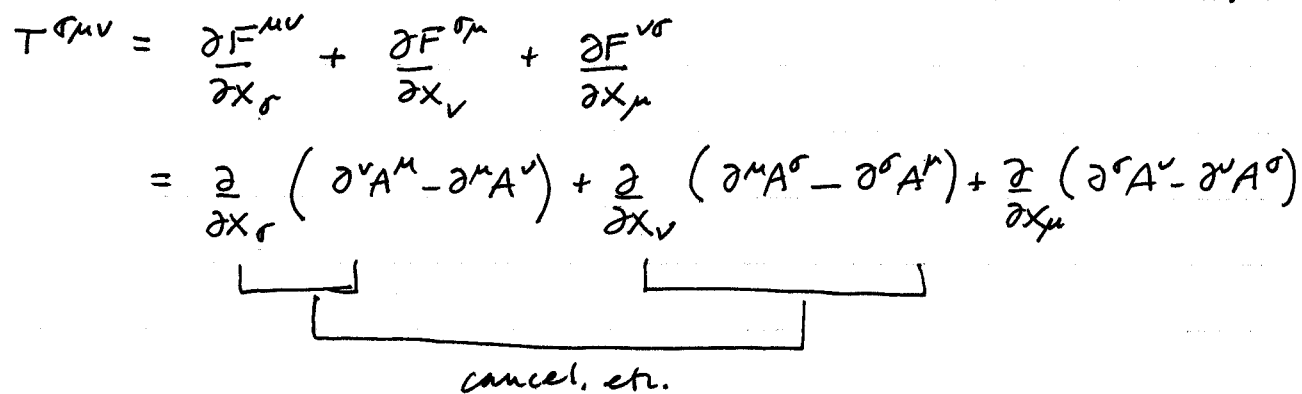 T^{σμν} = ∂F^{μν}/∂x_σ + ∂F^{σμ}/∂x_ν + ∂F^{νσ}/∂x_μ
= ∂/∂x_σ (∂^νA^μ - ∂^μA^ν) + ∂/∂x_ν (∂^μA^σ - ∂^σA^μ) + ∂/∂x_μ (∂^σA^ν - ∂^νA^σ)
cancel, etc.